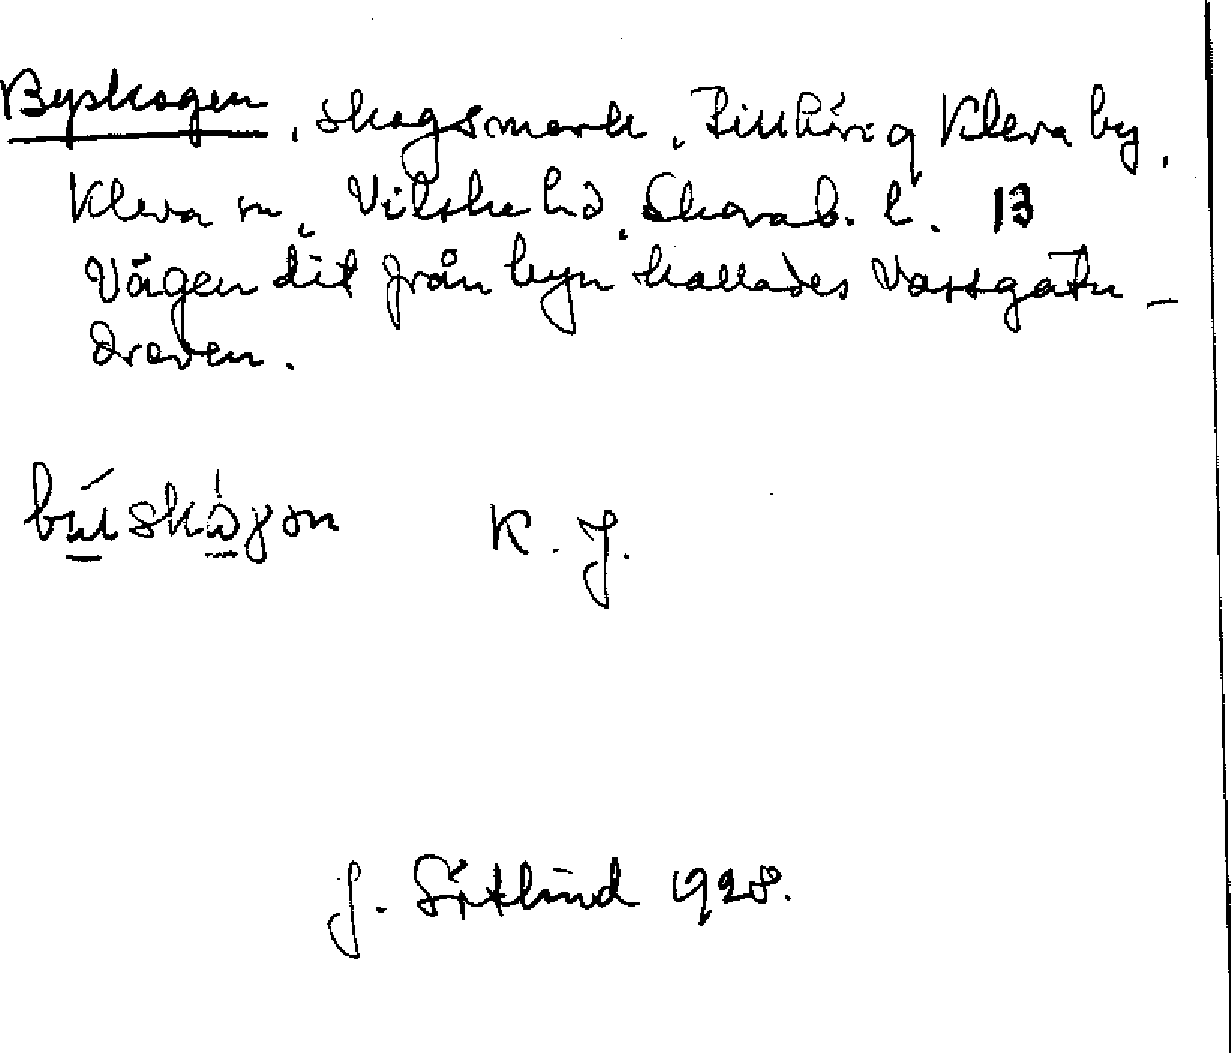 Byskogen, skogsmark. Tillhörig Kleva by,
Kleva sn, Vilske hd, Skarab. l. 13
Vägen dit från byn kallades Vassgatu-
dreven.
K. J.
J. Götlind 1928.